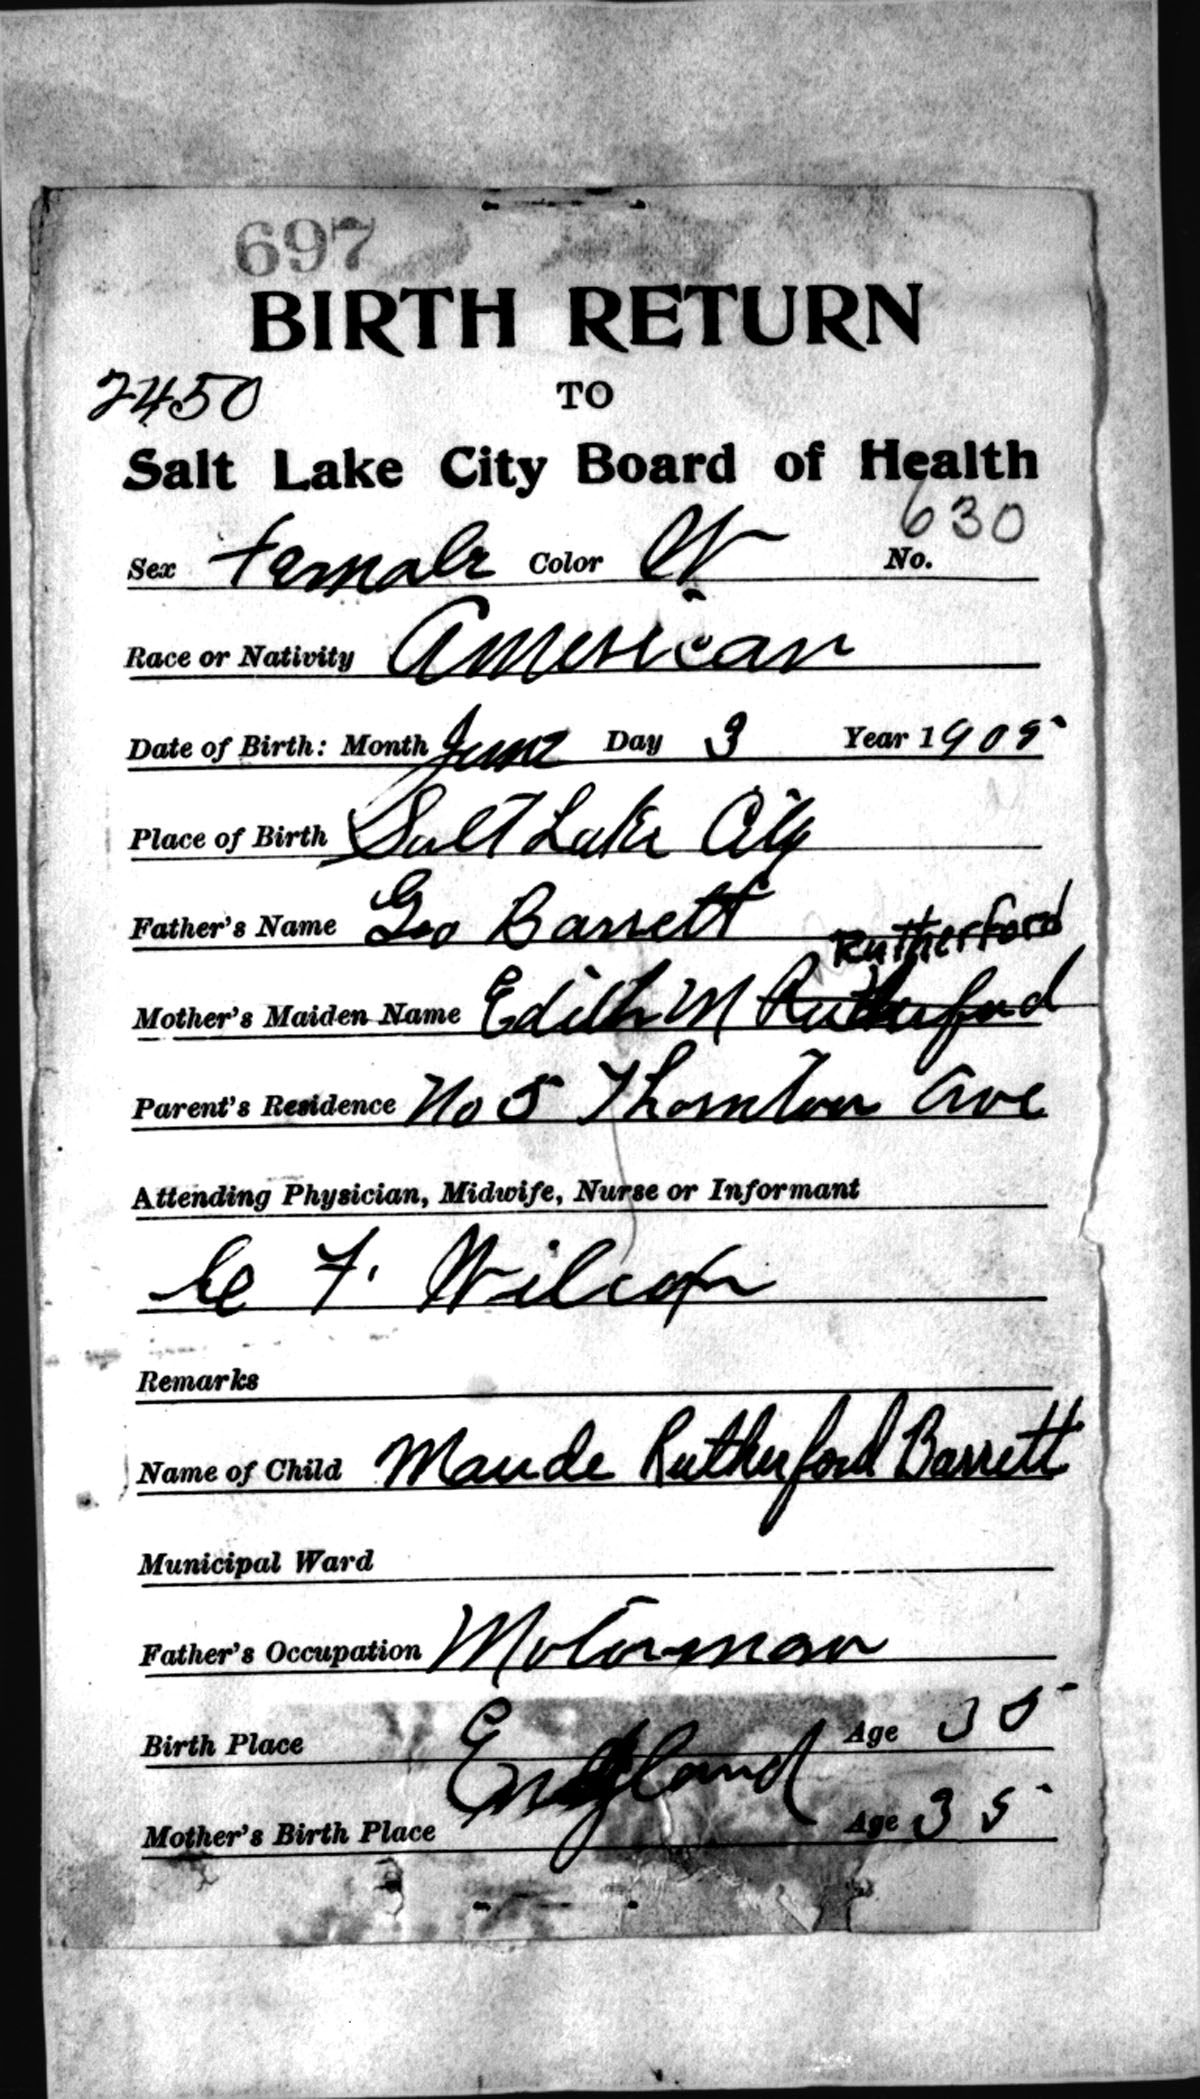 697
BIRTH RETURN
2450 TO
Salt Lake City Board of Health
630
Sex Female Color W No.
Race or Nativity American
Date of Birth: Month June Day 3 Year 1905
Place of Birth Salt Lake City
Father's Name Geo Barrett
Rutherford
Mother's Maiden Name Edith M Rutherford
Parent's Residence No 5 Thornton Ave
Attending Physician, Midwife, Nurse or Informant
C F. Wilcox
Remarks
Name of Child Maude Rutherford Barrett
Municipal Ward
Father's Occupation Motorman
Birth Place England Age 35
Mother's Birth Place Age 35